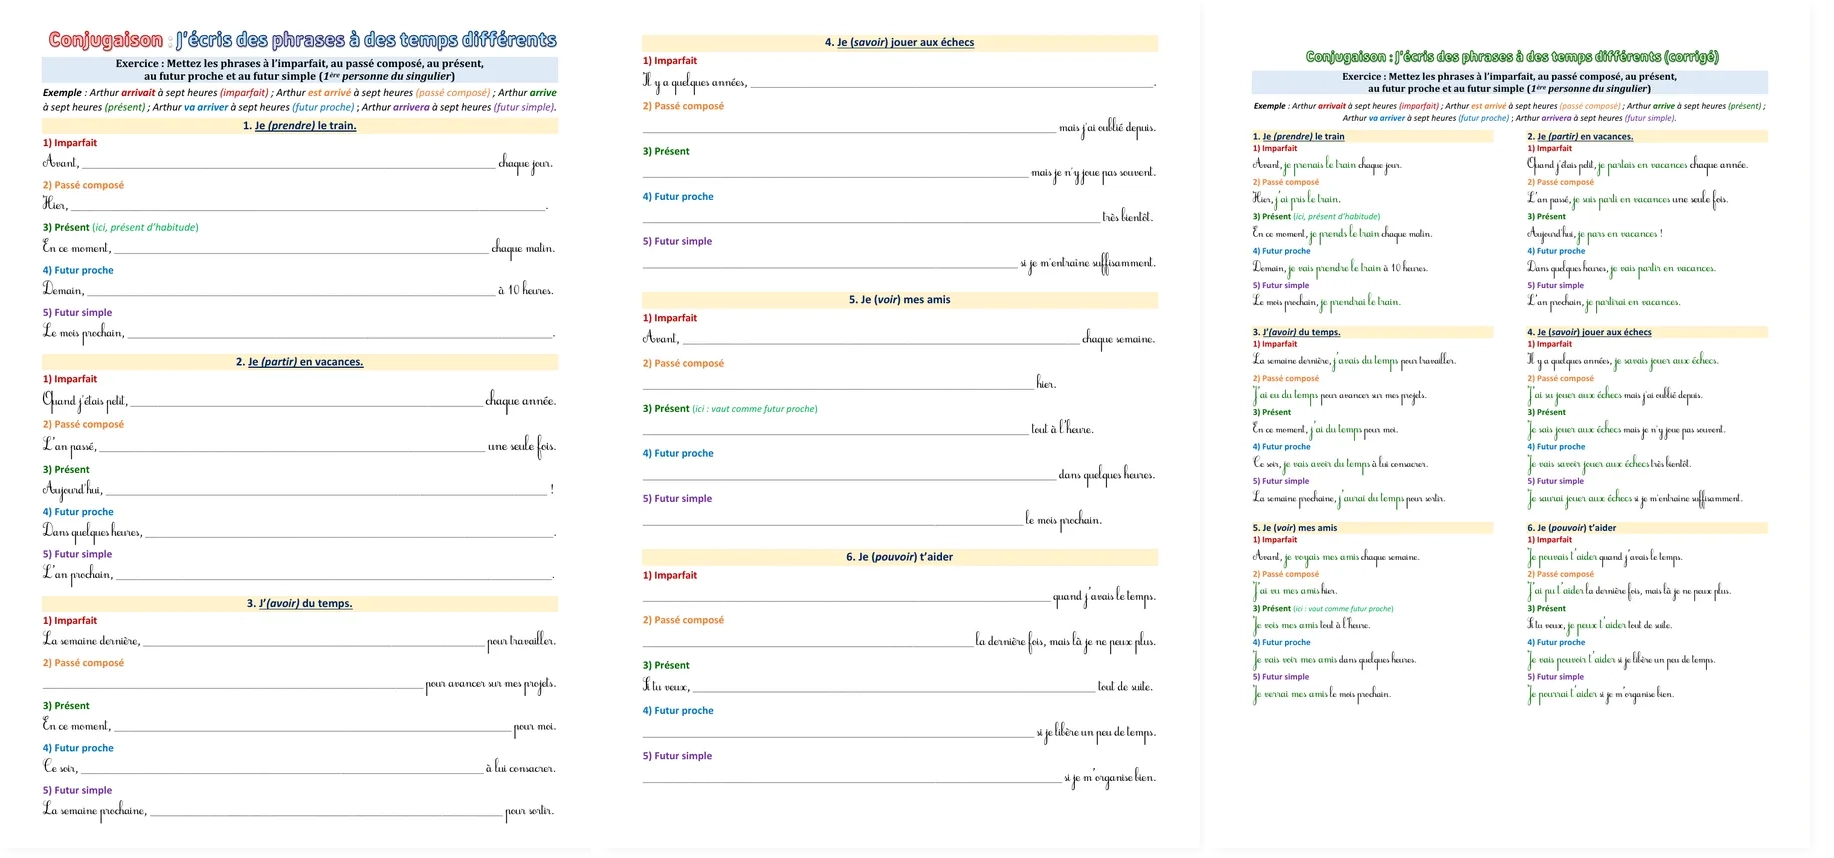 Conjugaison : J'écris des phrases à des temps différents
Exercice : Mettez les phrases à l'imparfait, au passé composé, au présent,
au futur proche et au futur simple (1ère personne du singulier)
Exemple : Arthur arrivait à sept heures (imparfait) ; Arthur est arrivé à sept heures (passé composé) ; Arthur arrive
à sept heures (présent) ; Arthur va arriver à sept heures (futur proche) ; Arthur arrivera à sept heures (futur simple).
1. Je (prendre) le train.
1) Imparfait
Avant, ____ chaque jour.
2) Passé composé
Hier, ____.
3) Présent (ici, présent d'habitude)
En ce moment, ____ chaque matin.
4) Futur proche
Demain, ____ à 10 heures.
5) Futur simple
Le mois prochain, ____.
2. Je (partir) en vacances.
1) Imparfait
Quand j'étais petit, ____ chaque année.
2) Passé composé
L'an passé, ____ une seule fois.
3) Présent
Aujourd'hui, ____ !
4) Futur proche
Dans quelques heures, ____.
5) Futur simple
L'an prochain, ____.
3. J'(avoir) du temps.
1) Imparfait
La semaine dernière, ____ pour travailler.
2) Passé composé
____ pour avancer sur mes projets.
3) Présent
En ce moment, ____ pour moi.
4) Futur proche
Ce soir, ____ à lui consacrer.
5) Futur simple
La semaine prochaine, ____ pour sortir.
4. Je (savoir) jouer aux échecs
1) Imparfait
Il y a quelques années, ____.
2) Passé composé
____ mais j'ai oublié depuis.
3) Présent
____ mais je n'y joue pas souvent.
4) Futur proche
____ très bientôt.
5) Futur simple
____ si je m'entraine suffisamment.
5. Je (voir) mes amis
1) Imparfait
Avant, ____ chaque semaine.
2) Passé composé
____ hier.
3) Présent (ici : vaut comme futur proche)
____ tout à l'heure.
4) Futur proche
____ dans quelques heures.
5) Futur simple
____ le mois prochain.
6. Je (pouvoir) t'aider
1) Imparfait
____ quand j'avais le temps.
2) Passé composé
____ la dernière fois, mais là je ne peux plus.
3) Présent
Si tu veux, ____ tout de suite.
4) Futur proche
____ si je libère un peu de temps.
5) Futur simple
____ si je m'organise bien.
Conjugaison : J'écris des phrases à des temps différents (corrigé)
Exercice : Mettez les phrases à l'imparfait, au passé composé, au présent,
au futur proche et au futur simple (1ère personne du singulier)
Exemple : Arthur arrivait à sept heures (imparfait) ; Arthur est arrivé à sept heures (passé composé) ; Arthur arrive à sept heures (présent) ;
Arthur va arriver à sept heures (futur proche) ; Arthur arrivera à sept heures (futur simple).
1. Je (prendre) le train
1) Imparfait
Avant, je prenais le train chaque jour.
2) Passé composé
Hier, j'ai pris le train.
3) Présent (ici, présent d'habitude)
En ce moment, je prends le train chaque matin.
4) Futur proche
Demain, je vais prendre le train à 10 heures.
5) Futur simple
Le mois prochain, je prendrai le train.
2. Je (partir) en vacances.
1) Imparfait
Quand j'étais petit, je partais en vacances chaque année.
2) Passé composé
L'an passé, je suis parti en vacances une seule fois.
3) Présent
Aujourd'hui, je pars en vacances !
4) Futur proche
Dans quelques heures, je vais partir en vacances.
5) Futur simple
L'an prochain, je partirai en vacances.
3. J'(avoir) du temps.
1) Imparfait
La semaine dernière, j'avais du temps pour travailler.
2) Passé composé
J'ai eu du temps pour avancer sur mes projets.
3) Présent
En ce moment, j'ai du temps pour moi.
4) Futur proche
Ce soir, je vais avoir du temps à lui consacrer.
5) Futur simple
La semaine prochaine, j'aurai du temps pour sortir.
4. Je (savoir) jouer aux échecs
1) Imparfait
Il y a quelques années, je savais jouer aux échecs.
2) Passé composé
J'ai su jouer aux échecs mais j'ai oublié depuis.
3) Présent
Je sais jouer aux échecs mais je n'y joue pas souvent.
4) Futur proche
Je vais savoir jouer aux échecs très bientôt.
5) Futur simple
Je saurai jouer aux échecs si je m'entraine suffisamment.
5. Je (voir) mes amis
1) Imparfait
Avant, je voyais mes amis chaque semaine.
2) Passé composé
J'ai vu mes amis hier.
3) Présent (ici : vaut comme futur proche)
Je vois mes amis tout à l'heure.
4) Futur proche
Je vais voir mes amis dans quelques heures.
5) Futur simple
Je verrai mes amis le mois prochain.
6. Je (pouvoir) t'aider
1) Imparfait
Je pouvais t'aider quand j'avais le temps.
2) Passé composé
J'ai pu t'aider la dernière fois, mais là je ne peux plus.
3) Présent
Si tu veux, je peux t'aider tout de suite.
4) Futur proche
Je vais pouvoir t'aider si je libère un peu de temps.
5) Futur simple
Je pourrai t'aider si je m'organise bien.